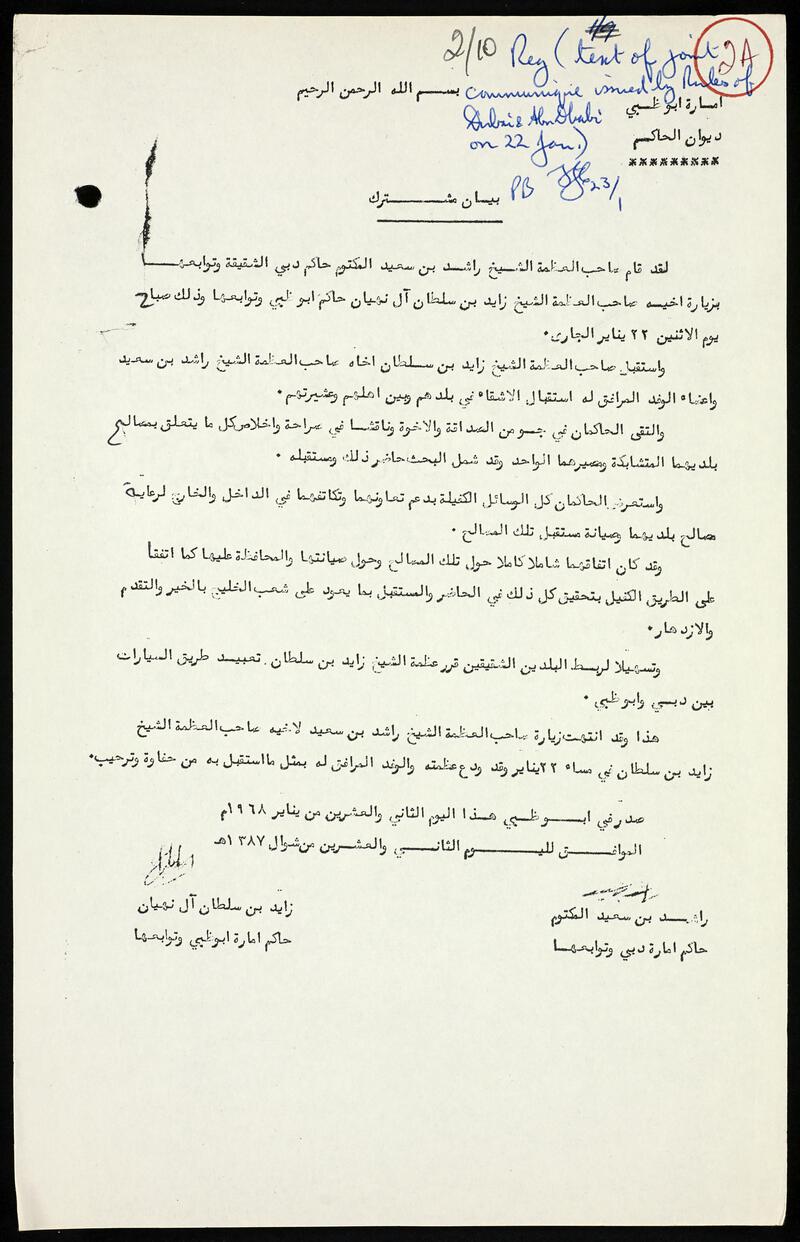 2/10 Reg (text of joint
2A
communique issued by Rulers of
Dubai & Abu Dhabi
on 22 Jan.)
PB 23/1
بسم الله الرحمن الرحيم
امارة ابوظبي
ديوان الحاكم
*********
بيان مشترك
لقد قام صاحب العظمة الشيخ راشد بن سعيد المكتوم حاكم دبي الشقيقة وتوابعها
بزيارة اخيه صاحب العظمة الشيخ زايد بن سلطان آل نهيان حاكم ابوظبي وتوابعها وذلك صباح
يوم الاثنين ٢٢ يناير الجارى٠
واستقبل صاحب العظمة الشيخ زايد بن سلطان اخاه صاحب العظمة الشيخ راشد بن سعيد
واعضاء الوفد المرافق له استقبال الاشقاء في بلدهم وبين اهلهم وعشيرتهم٠
والتقى الحاكمان في جو من الصداقة والاخوة وناقشا في صراحة واخلاص كل ما يتعلق بمصالح
بلديهما المتشابكة ومصيرهما الواحد وقد شمل البحث حاضر ذلك ومستقبله ٠
واستعرض الحاكمان كل الوسائل الكفيلة بدعم تعاونهما وتكاتفهما في الداخل والخارج لرعاية
مصالح بلديهما وصيانة مستقبل تلك المصالح ٠
وقد كان اتفاقهما شاملا كاملا حول تلك المصالح وحول صيانتها والمحافظة عليها كما اتفقا
على الطريق الكفيل بتحقيق كل ذلك في الحاضر والمستقبل بما يعود على شعب الخليج بالخير والتقدم
والازدهار٠
وتسهيلا لربط البلدين الشقيقين قرر عظمة الشيخ زايد بن سلطان تعبيد طريق السيارات
بين دبي وابوظبي ٠
هذا وقد انتهت زيارة صاحب العظمة الشيخ راشد بن سعيد لاخيه صاحب العظمة الشيخ
زايد بن سلطان في مساء ٢٢ يناير وقد ودع عظمته والوفد المرافق له بمثل ما استقبل به من حفاوة وترحيب٠
صدر في ابوظبي هذا اليوم الثاني والعشرين من يناير ١٩٦٨م
الموافق لليوم الثاني والعشرين من شوال ١٣٨٧هـ
راشد بن سعيد المكتوم
حاكم امارة دبي وتوابعها
زايد بن سلطان آل نهيان
حاكم امارة ابوظبي وتوابعها